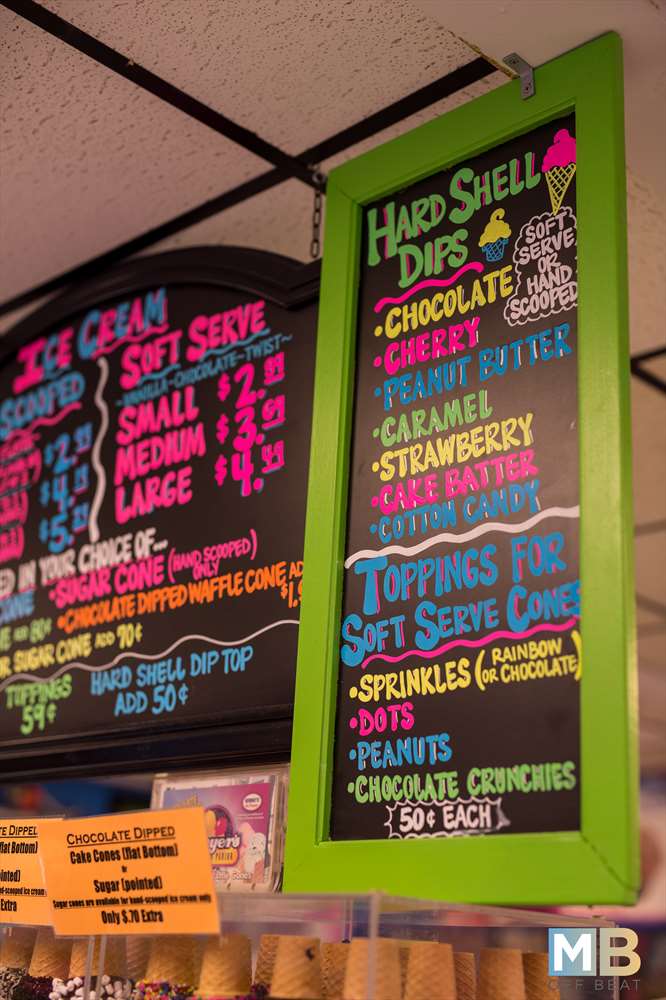 ICE CREAM
SCOOPED
SOFT SERVE
~VANILLA-CHOCOLATE-TWIST~
SMALL $2.99
MEDIUM $3.69
LARGE $4.49
IN YOUR CHOICE OF...
•SUGAR CONE (HAND SCOOPED ONLY)
•CHOCOLATE DIPPED WAFFLE CONE
SUGAR CONE ADD 70¢
TOPPINGS
59¢
HARD SHELL DIP TOP
ADD 50¢
HARD SHELL
DIPS
SOFT
SERVE
OR
HAND
SCOOPED
•CHOCOLATE
•CHERRY
•PEANUT BUTTER
•CARAMEL
•STRAWBERRY
•CAKE BATTER
•COTTON CANDY
TOPPINGS FOR
SOFT SERVE CONES
•SPRINKLES (RAINBOW OR CHOCOLATE)
•DOTS
•PEANUTS
•CHOCOLATE CRUNCHIES
50¢ EACH
CHOCOLATE DIPPED
Cake Cones (flat Bottom)
or
Sugar (pointed)
Sugar cones are available for hand-scooped ice cream only
Only $.70 Extra
Extra
MB
OFF BEAT